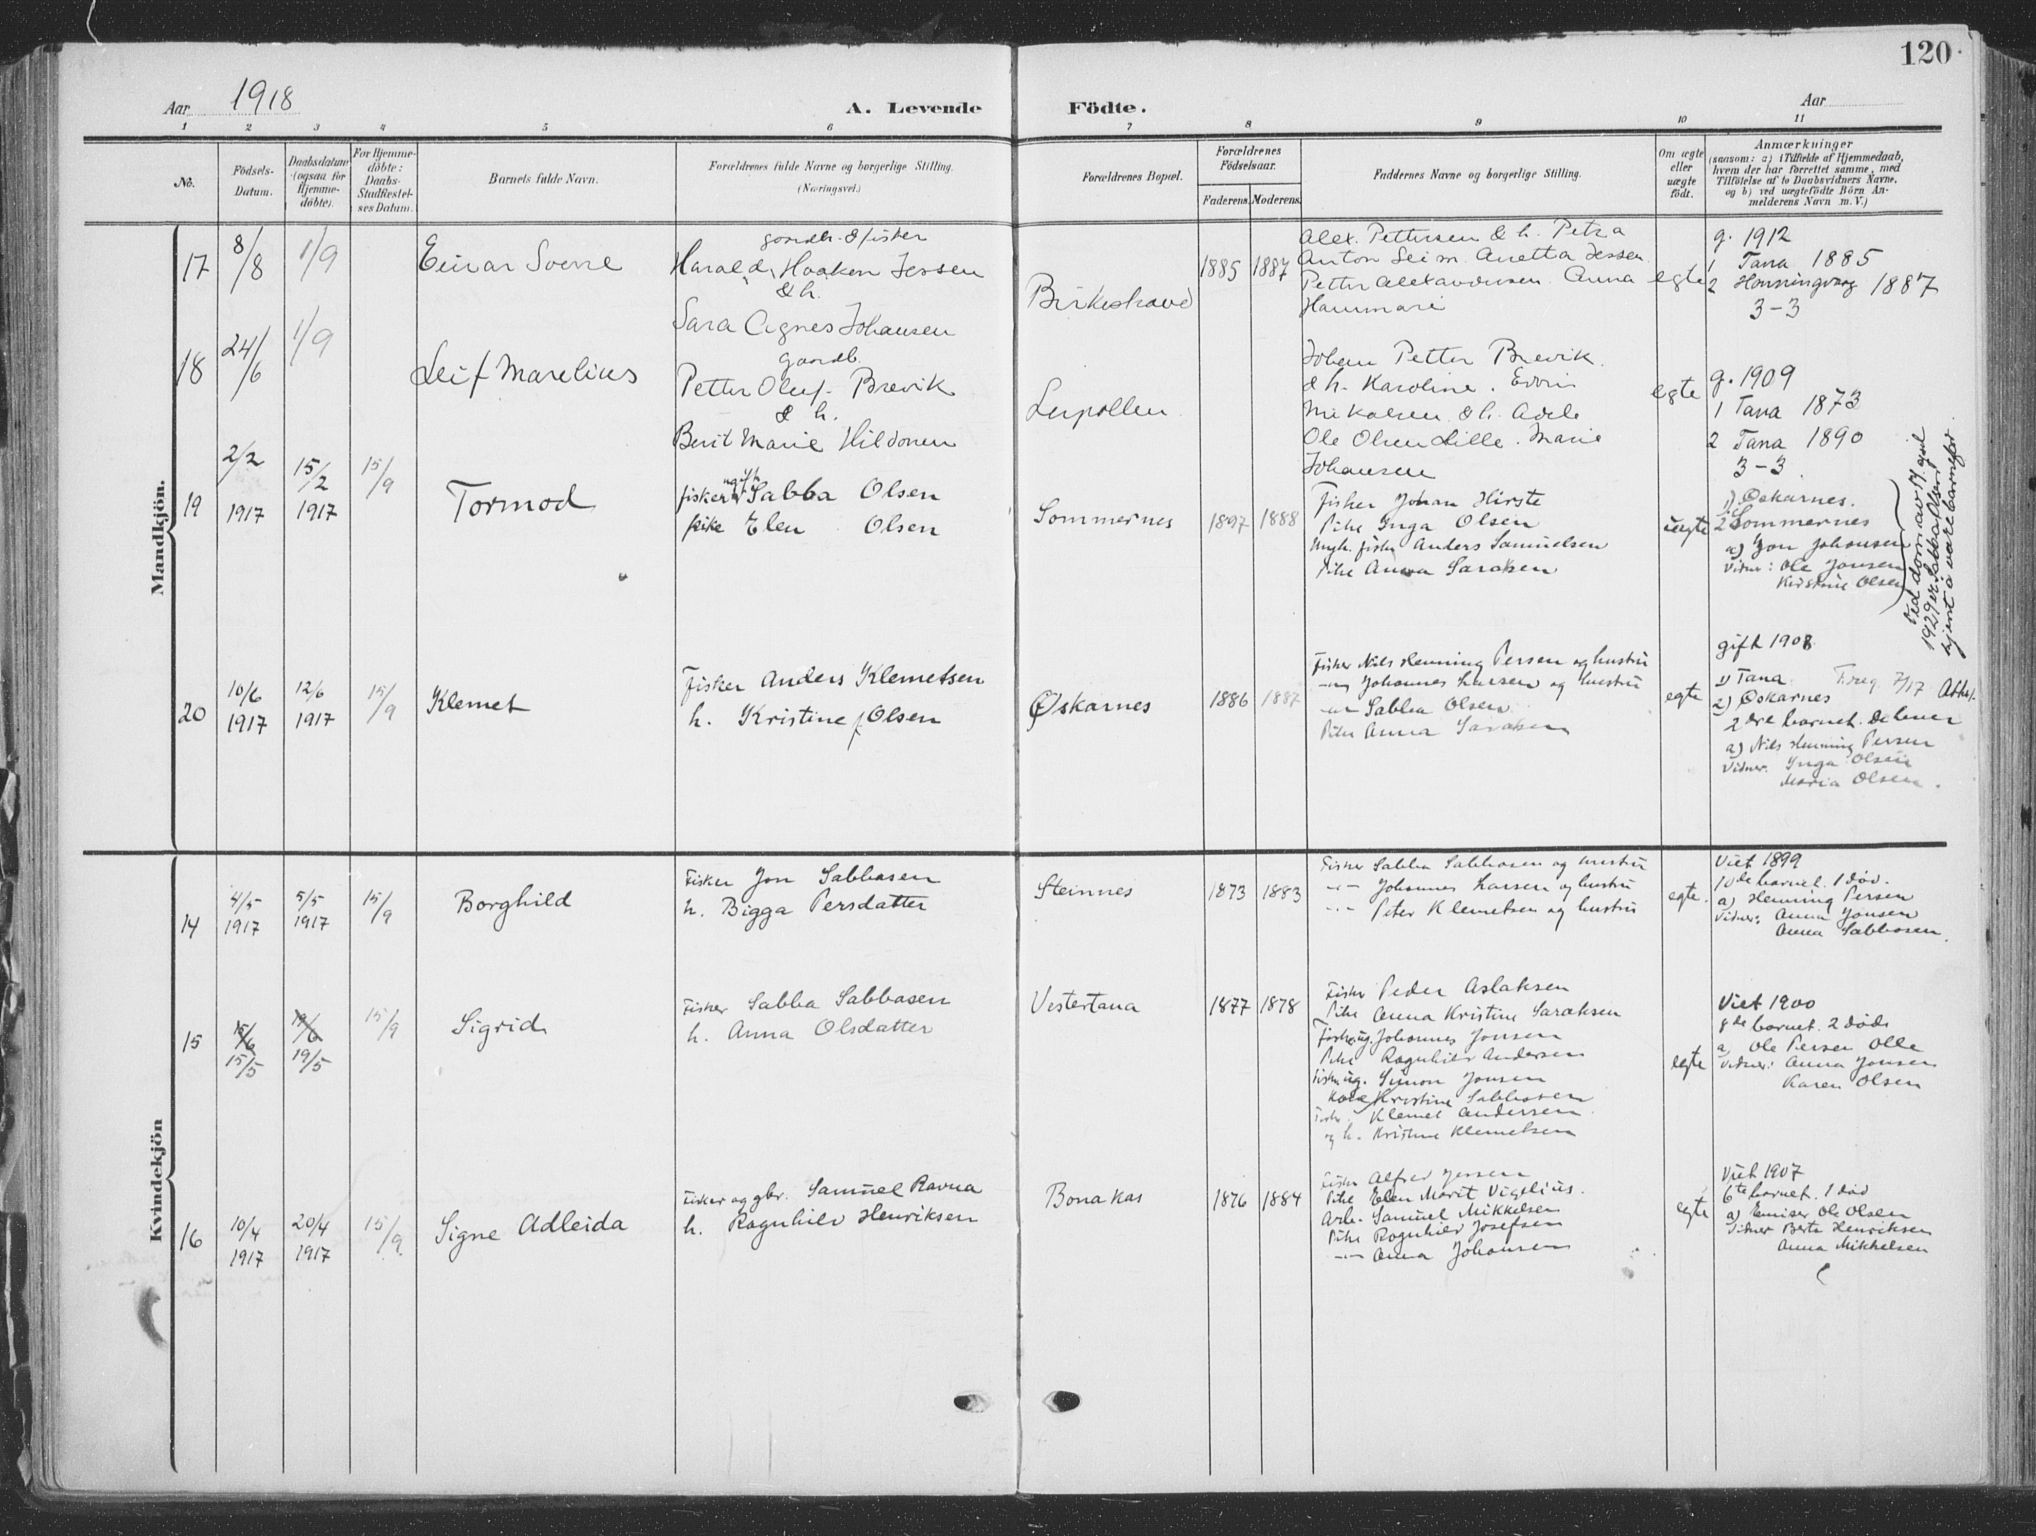 120
Aar 1918
A. Levende Födte.
Aar
1 2 3 4 5 6 7 8 9 10 11
No.
Födsels-
Datum.
Daabsdatum
(ogsaa for
Hjemme-
döbte).
For Hjemme-
döbte:
Daabs-
Stadfæstel-
ses Datum.
Barnets fulde Navn.
Forældrenes fulde Navne og borgerlige Stilling.
(Næringsvei.)
Forældrenes Bopæl.
Forældrenes
Födselsaar.
Faderens. Moderens.
Faddernes Navne og borgerlige Stilling.
Om ægte
eller
uægte
födt.
Anmærkninger
(saasom: a) i Tilfælde af Hjemmedaab,
hvem der har forrettet samme, med
Tilföielse af to Daabsvidners Navne,
og b) ved uægtefödte Börn An-
melderens Navn m. V.)
Mandkjön.
17
8/8
1/9
Einar Sverre
gaardb. & fisker
Harald Haakon Jessen
& h.
Sara Agnes Johansen
Birkestrand
1885 1887
Alex. Pettersen & h. Petra
Anton Seim. Anetta Jessen
Petter Alexandersen Anna
Hammari
egte
g. 1912
1 Tana 1885
2 Honningvaag 1887
3-3
18
24/6
1/9
Leif Marelius
gaardb.
Petter Oluf Brevik
& h.
Berit Marie Hildonen
Leirpollen
Johan Petter Brevik
& h. Karoline. Edvin
Nikolsen & h. Adele
Ole Olsen Lille. Marie
Johansen
egte
g. 1909
1 Tana 1873
2 Tana 1890
3-3
19
2/2
1917
15/2
1917
15/9
Tormod
fisker ugift Sabba Olsen
pike Elen Olsen
Sommernes
1897 1888
Fisker Johan Hirste
Pike Inga Olsen
Ungk. fisker Anders Samuelsen
Pike Anna Saraksen
uegte
1) Øskarnes.
2) Sommernes
a) Jon Johansen
Vidner: Ole Jonsen
Kirstine Olsen
Ved dom av 17 april
1929 er Sabba Olsen
kjent å være barnefar
20
10/6
1917
12/6
1917
15/9
Klemet
Fisker Anders Klemetsen
h. Kristine f. Olsen
Øskarnes
1886 1887
Fisker Nils Henning Persen og hustru
-"- Johannes Larsen og hustru
-"- Sabba Olsen
Pike Anna Saraksen
egte
gift 1908
1) Tana
2) Øskarnes
7/17 Attest
2dre barnet. De lever
a) Nils Henning Persen
Vidner: Inga Olsen
Maria Olsen.
Kvindekjön
14
4/5
1917
5/5
1917
15/9
Borghild
Fisker Jon Sabbasen
h. Bigga Persdatter
Steinnes
1873 1883
Fisker Sabba Sabbasen og hustru
-"- Johannes Larsen og hustru
-"- Peter Klemetsen og hustru
egte.
Viet 1899
10de barnet. 1 død.
a) Henning Persen
Vidner: Anna Jonsen
Anna Sabbasen.
15
15/6
15/5
19/6
19/5
15/9
Sigrid
Fisker Sabba Sabbasen
h. Anna Olsdatter
Vestertana
1877 1878
Fisker Peder Aslaksen
Pike Anna Kristine Saraksen
Fisker ug. Johannes Jonsen
Pike Ragnhild Andersen
Fisker ug. Simon Jonsen
Kone Kristine Sabbasen
Fisker Klemet Anderssen
og h. Kristine Klemetsen
egte
Viet 1900
8de barnet. 2 døde
a) Ole Persen Olle
Vidner: Anna Jonsen
Karen Olsen
16
10/4
1917
20/4
1917
15/9
Signe Adleida
Fisker og gbr. Samuel Ravna
h. Ragnhild Henriksen
Bonakas
1876 1884
Fisker Alfred Jessen
Pike Elen Marit Vigelius.
Arb. Samuel Mikkelsen
Pike Ragnhild Josefsen
-"- Anna Johansen
egte
Viet 1907
6te barnet. 1 død
a) Emisær Ole Olsen
Vidner Berta Henriksen
Anna Mikkelsen